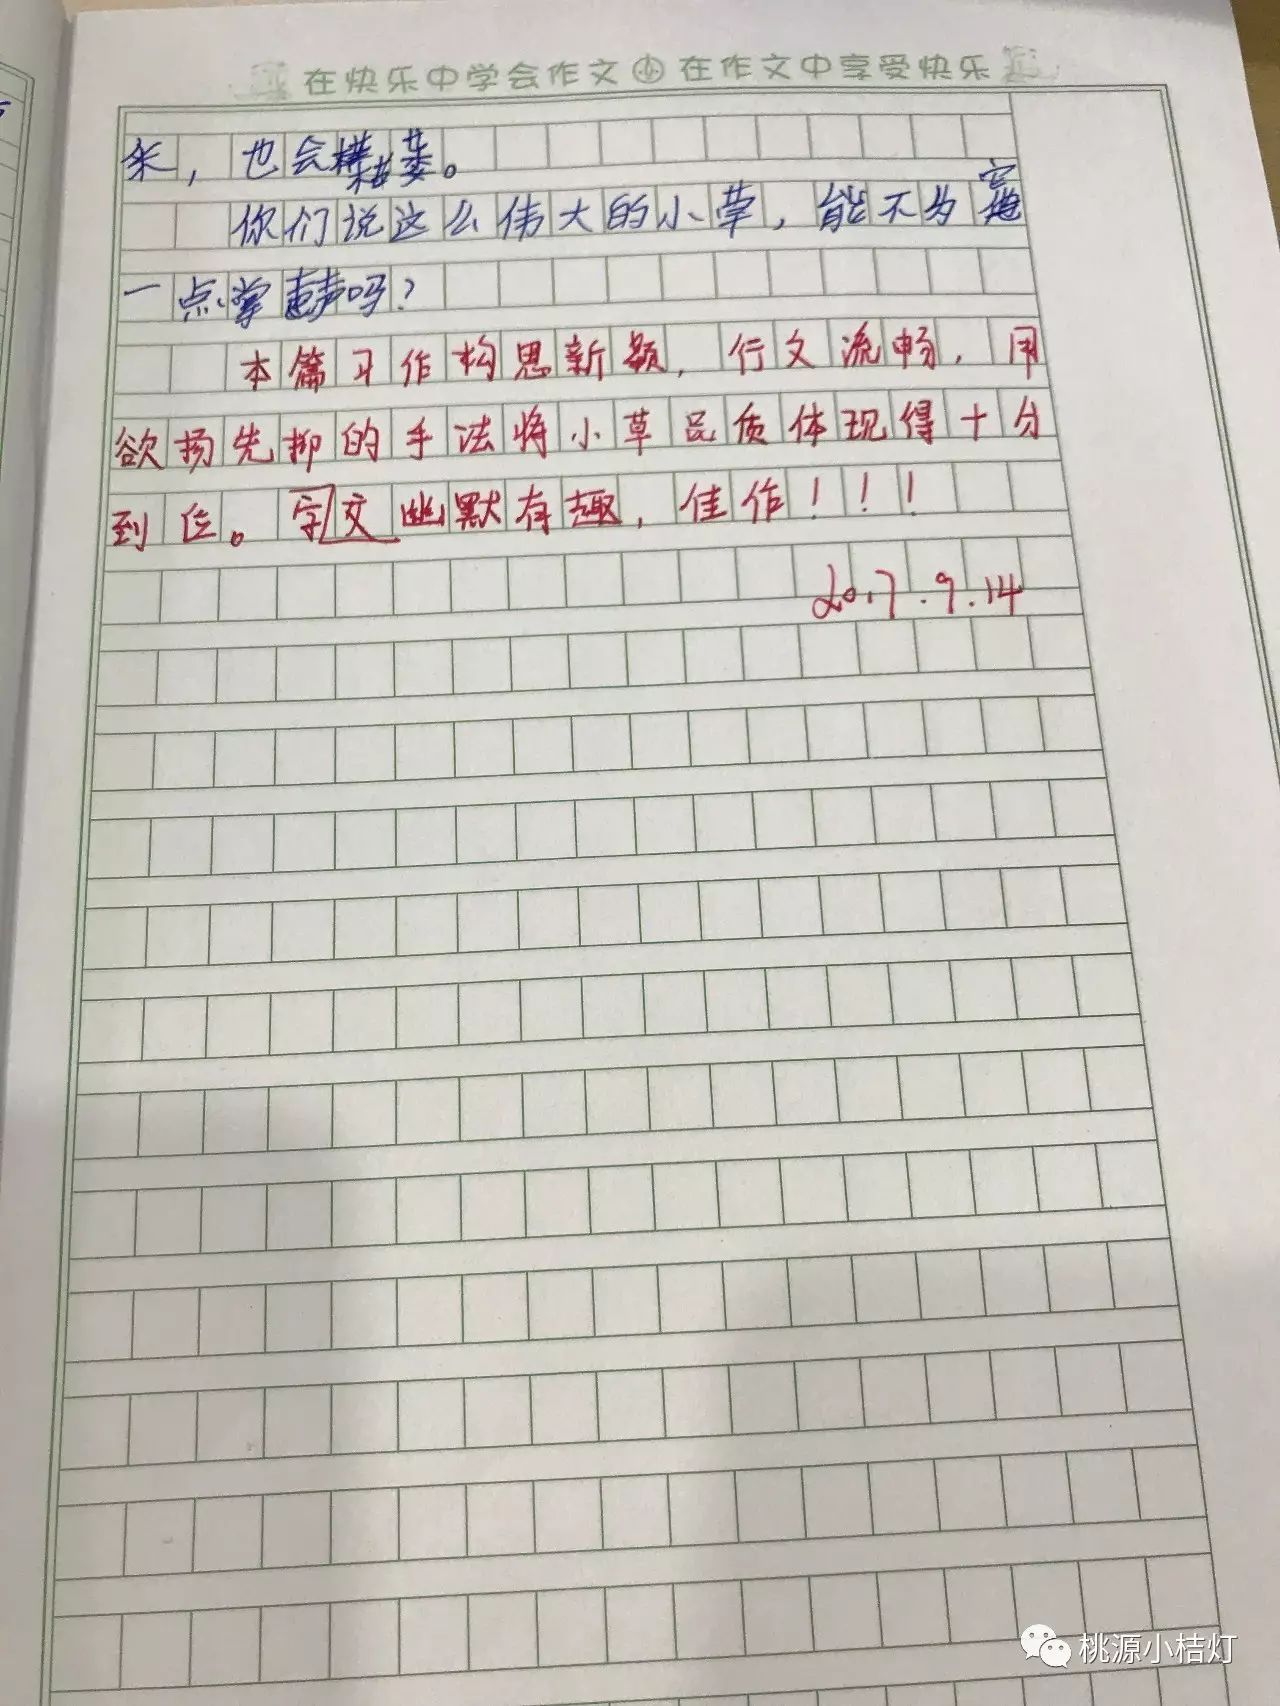 在快乐中学会作文 在作文中享受快乐
来，也会枯萎。
你们说这么伟大的小草，能不为它
一点掌声吗？
本篇习作构思新颖，行文流畅，用
欲扬先抑的手法将小草品质体现得十分
到位。字文幽默有趣，佳作！！！
2017.9.14
桃源小桔灯